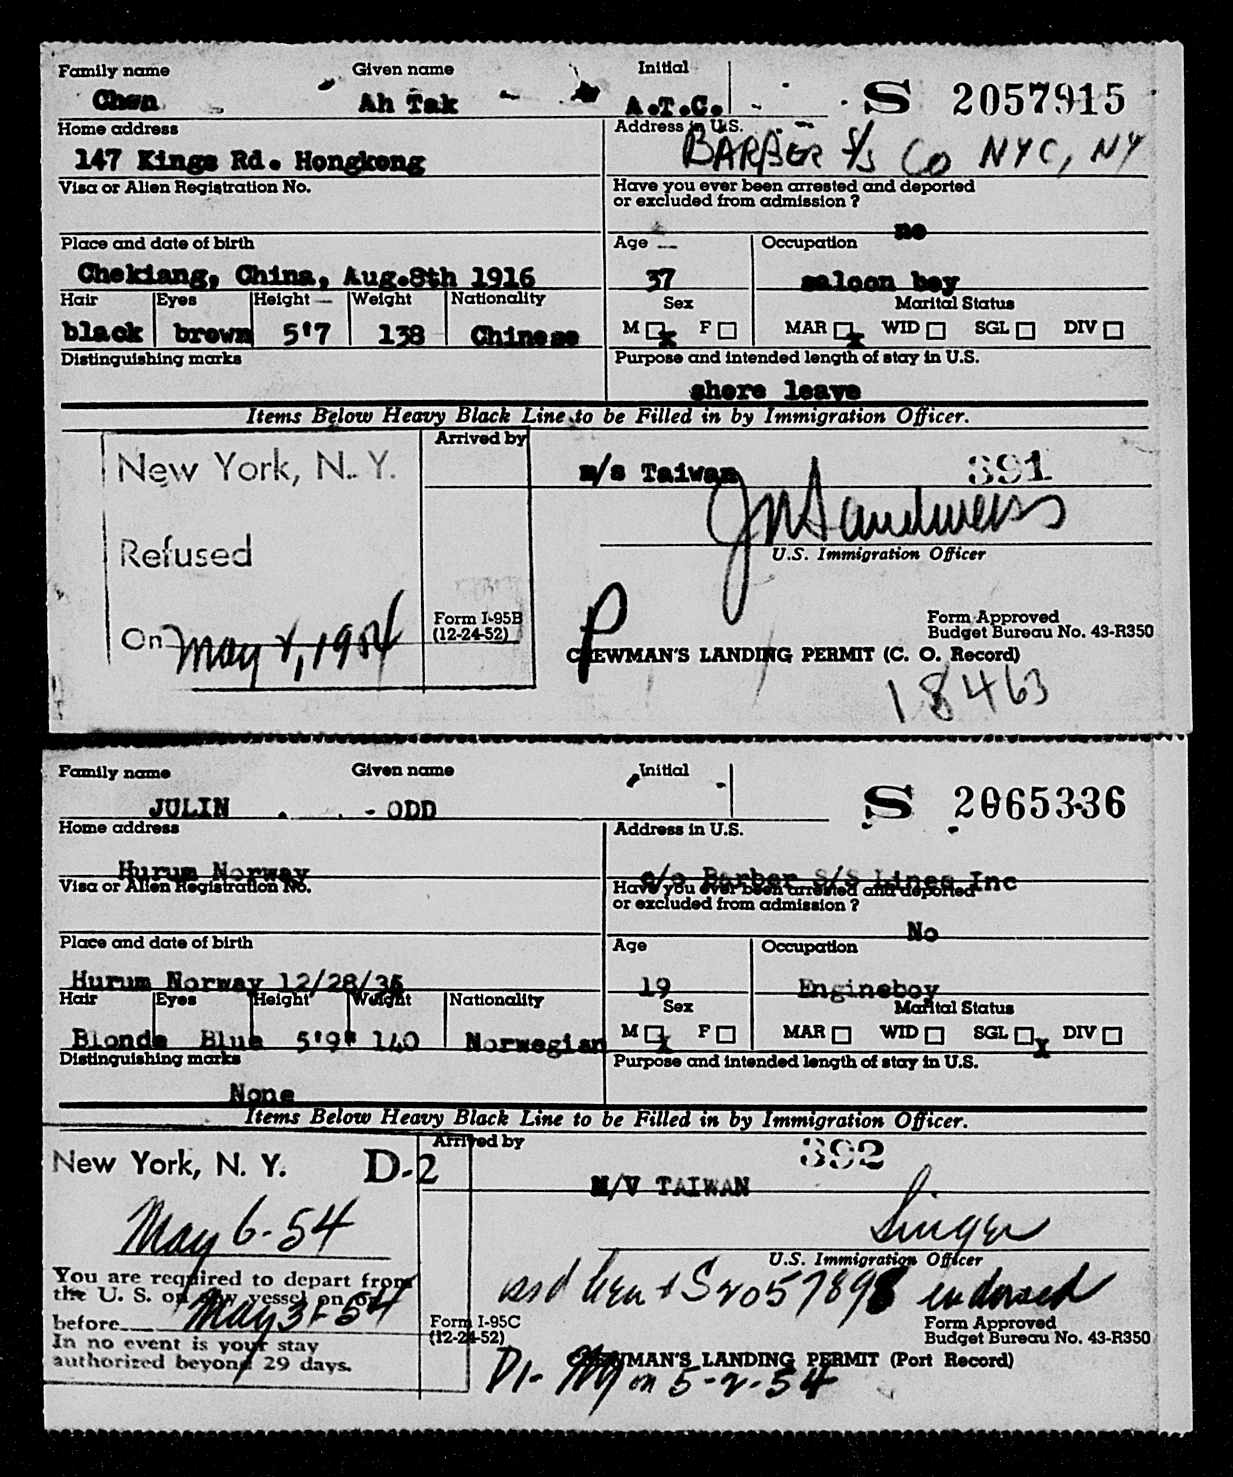 Family name Given name Initial
Chen Ah Tak A.T.C. S 2057915
Home address Address in U.S.
147 Kings Rd. Hongkong BARBER S/S Co NYC, NY
Visa or Alien Registration No. Have you ever been arrested and deported
or excluded from admission?
no
Place and date of birth Age Occupation
Chekiang, China, Aug.8th 1916 37 saloon boy
Hair Eyes Height Weight Nationality Sex Marital Status
black brown 5'7 138 Chinese M x F MAR x WID SGL DIV
Distinguishing marks Purpose and intended length of stay in U.S.
shore leave
Items Below Heavy Black Line to be Filled in by Immigration Officer.
Arrived by
New York, N. Y. m/s Taiwan 391
Refused U.S. Immigration Officer
On May 1, 1954 Form I-95B
(12-24-52)
P
Form Approved
Budget Bureau No. 43-R350
CREWMAN'S LANDING PERMIT (C. O. Record)
18463
Family name Given name Initial
JULIN - ODD S 2065336
Home address Address in U.S.
Hurum Norway c/o Barber S/S Lines Inc
Visa or Alien Registration No. Have you ever been arrested and deported
or excluded from admission?
No
Place and date of birth Age Occupation
Hurum Norway 12/28/35 19 Engineboy
Hair Eyes Height Weight Nationality Sex Marital Status
Blonde Blue 5'9" 140 Norwegian M x F MAR WID SGL x DIV
Distinguishing marks Purpose and intended length of stay in U.S.
None
Items Below Heavy Black Line to be Filled in by Immigration Officer.
Arrived by
New York, N. Y. D-2 M/V TAIWAN 392
May 6-54 Singer
U.S. Immigration Officer
You are required to depart from
the U. S. on any vessel on or
before May 31-54
In no event is your stay
authorized beyond 29 days.
S2057898 endorsed
Form I-95C
(12-24-52)
Form Approved
Budget Bureau No. 43-R350
CREWMAN'S LANDING PERMIT (Port Record)
D1- NY on 5-2-54